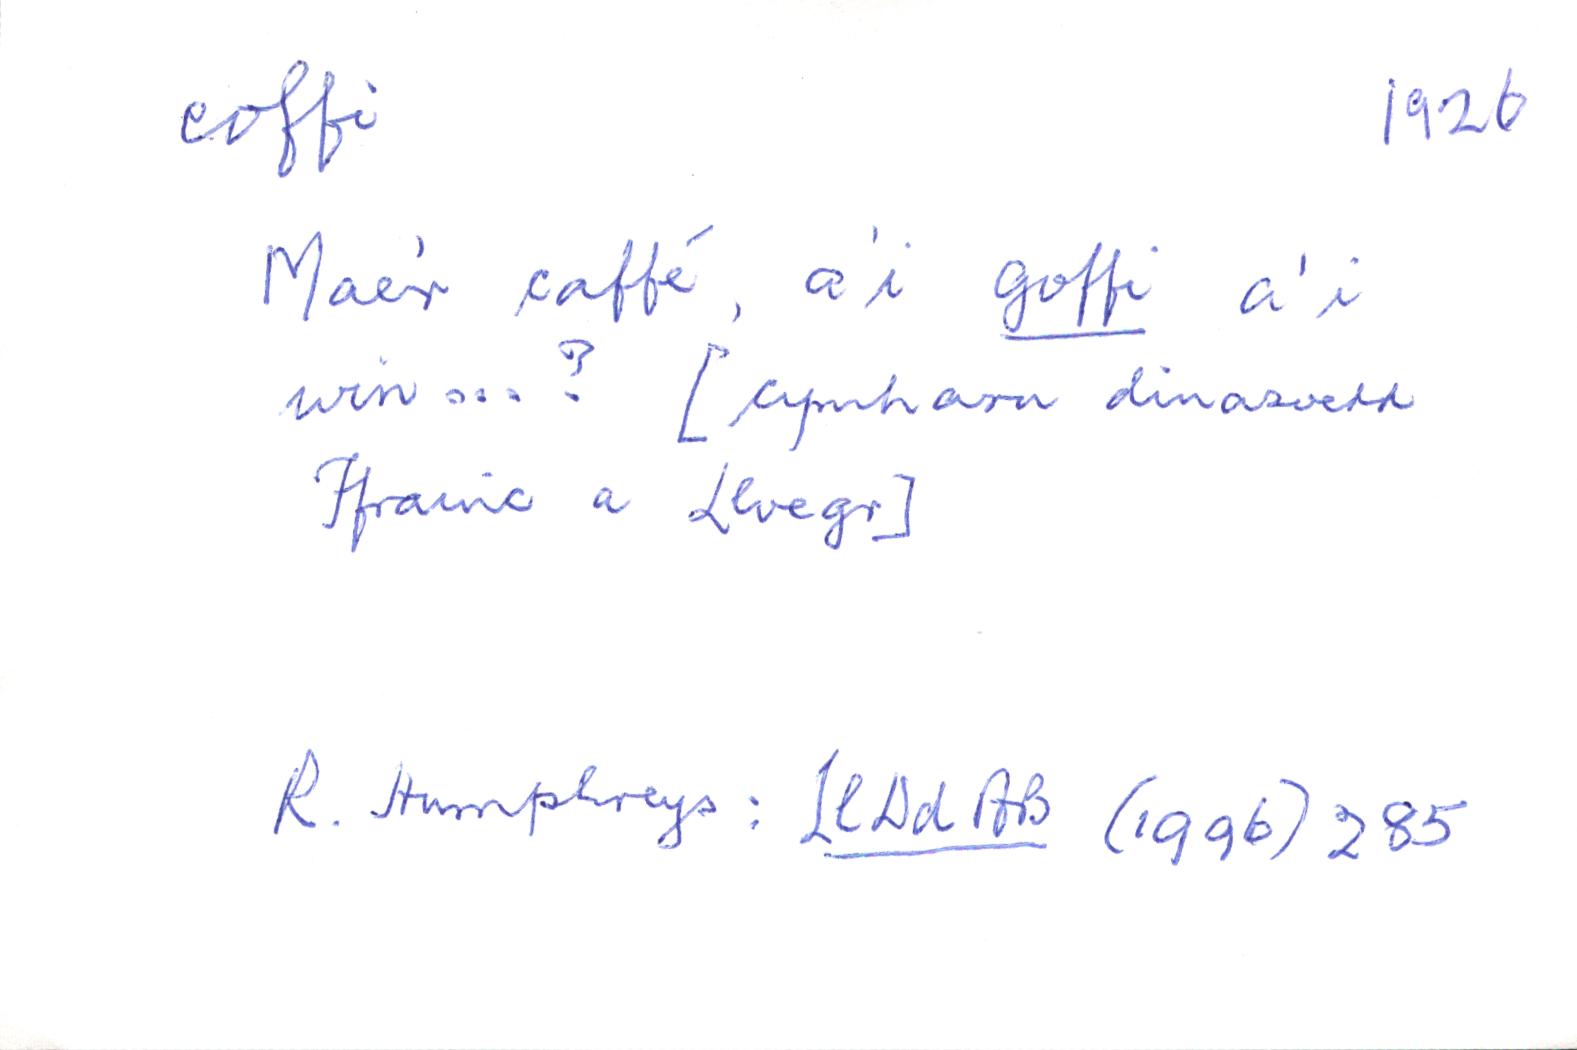 coffi 1926
Mae'r caffé, a'i goffi a'i
win...? [cymharu dinasoedd
Ffrainc a Lloegr]
R. Humphreys: LlDdAB (1996) 285